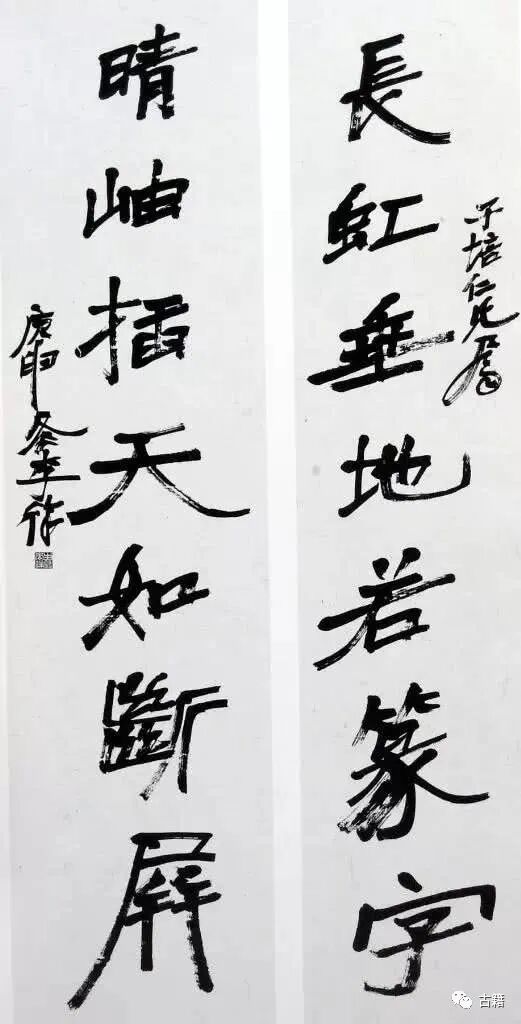 子培仁兄屬
長虹垂地若篆字
晴岫插天如斷屏
庚申冬李徐
古籍